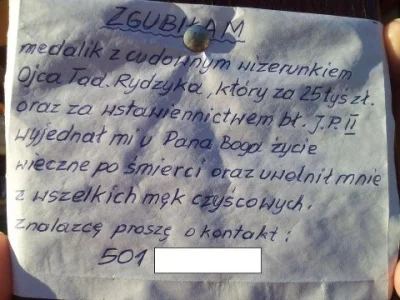 ZGUBIŁAM
medalik z cudownym wizerunkiem
Ojca Tad. Rydzyka, który za 25 tyś zł.
oraz za wstawiennictwem bł. J.P. II
wyjednał mi u Pana Boga życie
wieczne po śmierci oraz uwolnił mnie
z wszelkich męk czyścowych.
Znalazcę proszę o kontakt:
501